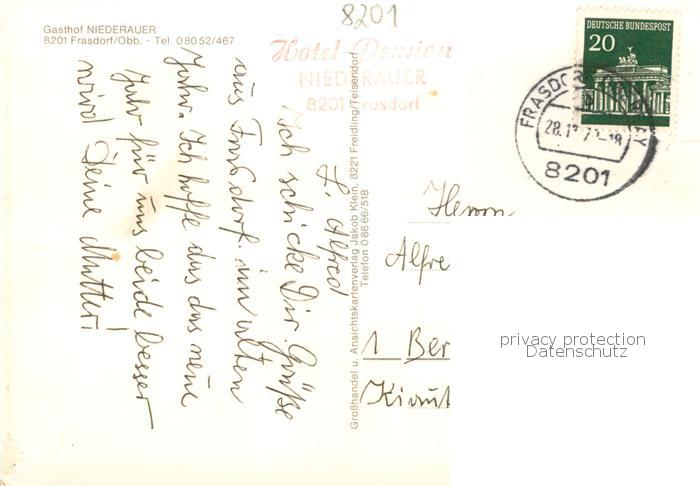 Gasthof NIEDERAUER
8201 Frasdorf/Obb. - Tel. 08052/467
8201
Hotel-Pension
NIEDERAUER
8201 Frasdorf
DEUTSCHE BUNDESPOST
20
FRASDORF
28.12.7
8201
L. Alfred
Ich schicke Dir Grüße
aus Frasdorf im alten
Jahr. Ich hoffe das das neue
Jahr für uns beide besser
wird Deine Mutter!
Großhandel u. Ansichtskartenverlag Jakob Klein, 8221 Freidling/Teisendorf
Telefon 08666/518
Herrn
Alfre
1 Ber
privacy protection
Datenschutz